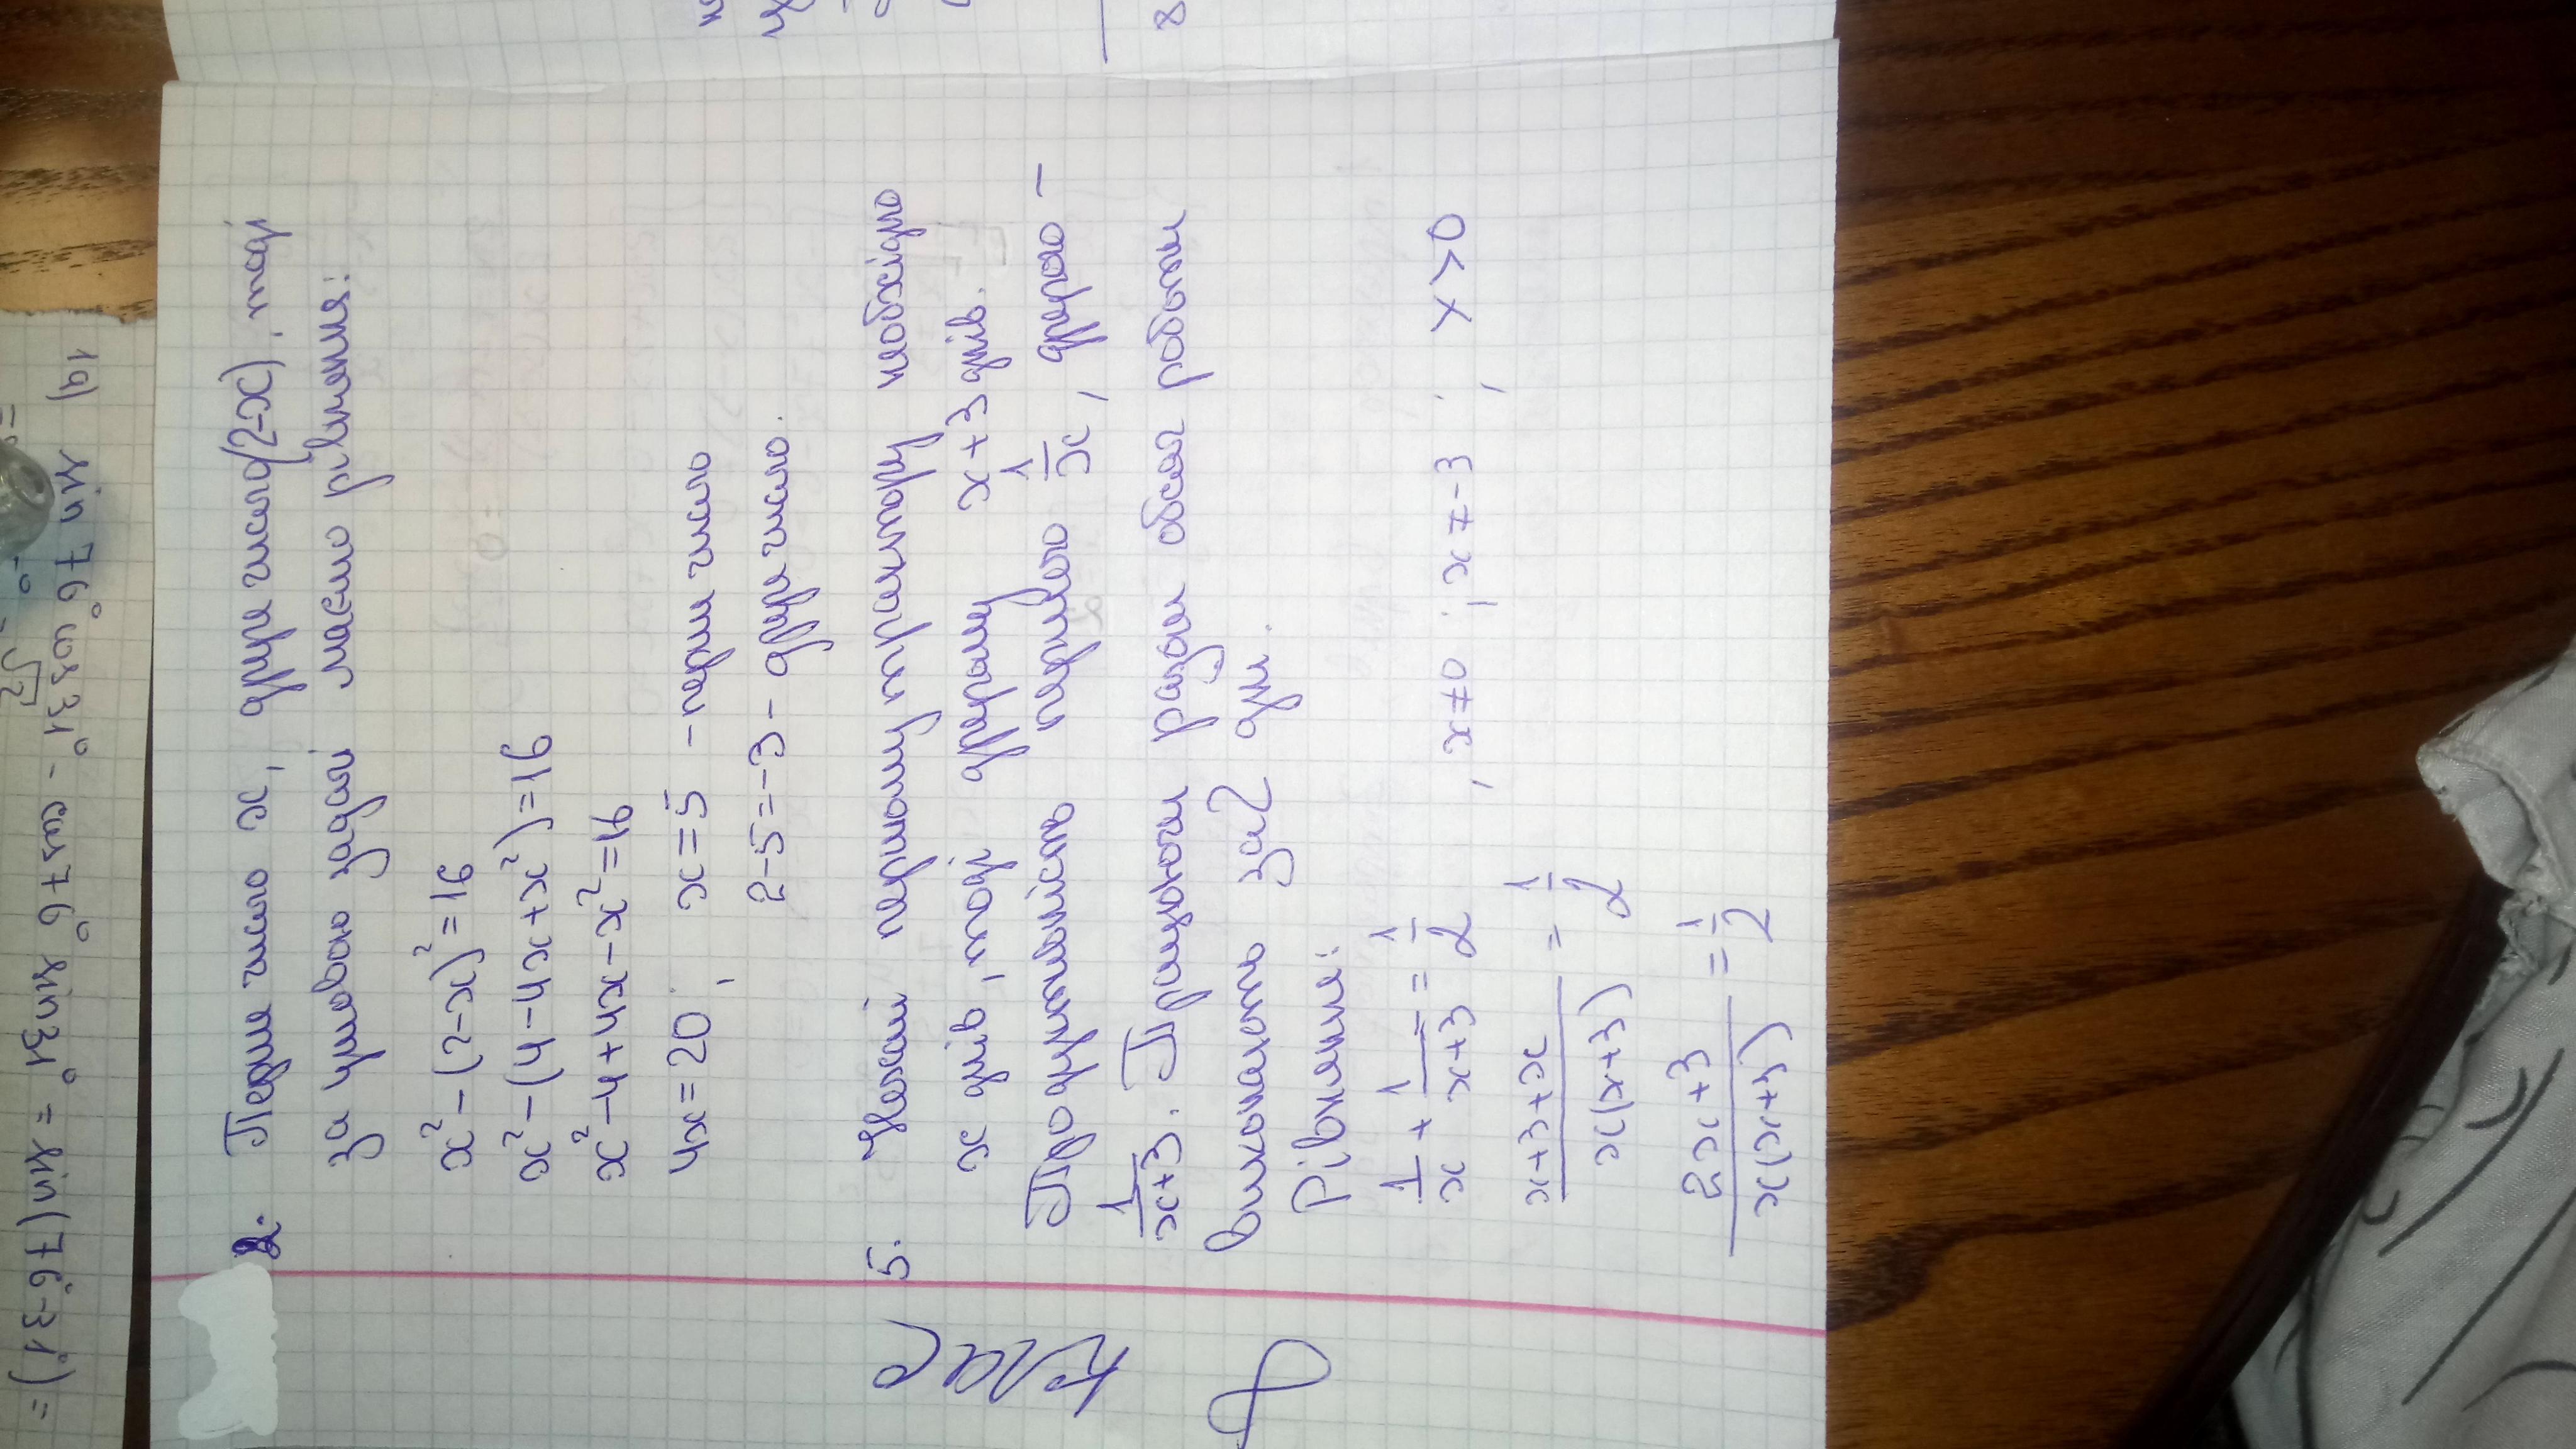 2. Перше число x, друге число (2-x), тоді
за умовою задачі маємо рівняння:
x² - (2-x)² = 16
x² - (4 - 4x + x²) = 16
x² - 4 + 4x - x² = 16
4x = 20, x = 5 - перше число
2-5 = -3 - друге число.
5. Нехай першому трактору необхідно
x днів, тоді другому x+3 днів.
Продуктивність першого 1/x, другого -
1/x+3. Працюючи разом обсяг роботи
виконають за 2 дні.
Рівняння:
1/x + 1/x+3 = 1/2, x≠0; x≠-3; x>0
x+3+x/x(x+3) = 1/2
2x+3/x(x+3) = 1/2
8 клас
1a) sin 76° cos 31° - cos 76° sin 31° = sin(76°-31°) =